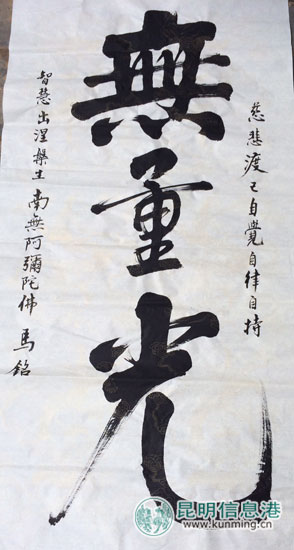 慈悲渡己自覺自律自持
無量光
智慧出涅槃生 南無阿彌陀佛 馬銘
昆明信息港
www.kunming.cn